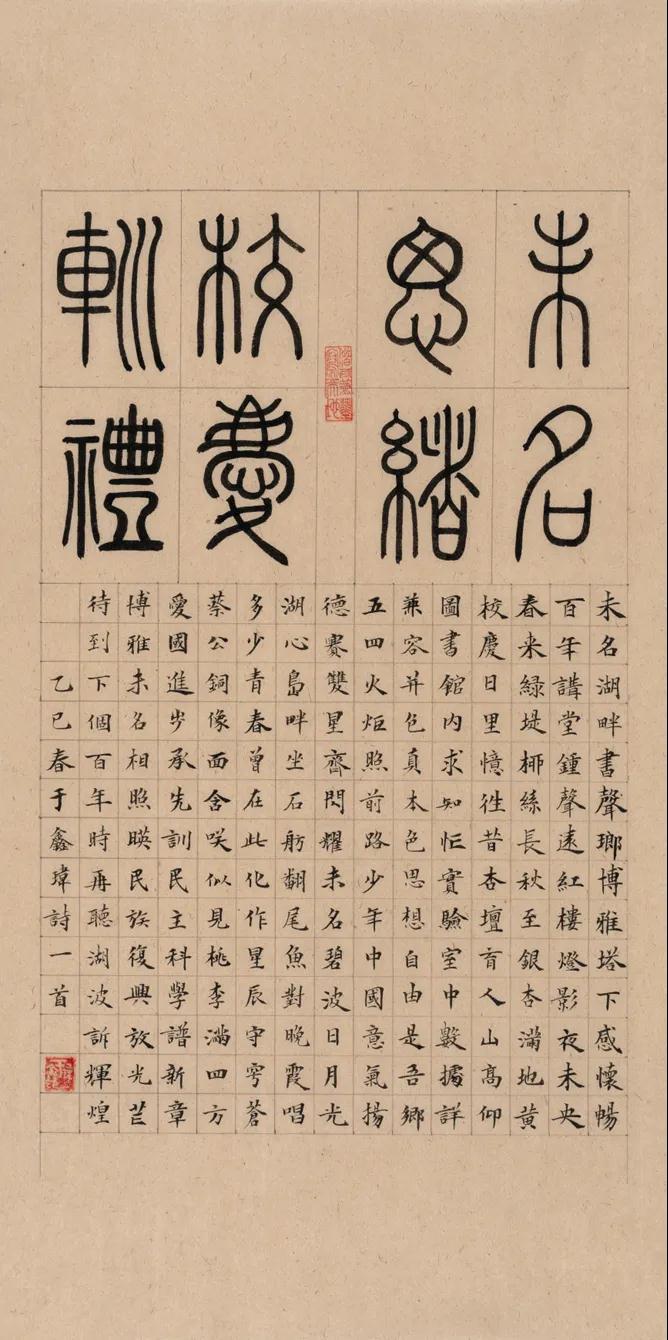 未名
思緒
校慶
巡禮
未名湖畔書聲瑯博雅塔下感懷暢
百年講堂鍾聲遠紅樓燈影夜未央
春来緑堤桺絲長秋至銀杏滿地黃
校慶日里憶徃昔杏壇育人山高仰
圖書館内求知忙實驗室中數據詳
兼容并包真本色思想自由是吾鄉
五四火炬照前路少年中國意氣揚
德賽雙星齊閃耀未名碧波日月光
湖心島畔坐石舫翻尾魚對晚霞唱
多少青春曾在此化作星辰守穹蒼
蔡公銅像面含咲似見桃李滿四方
愛國進步承先訓民主科學譜新章
博雅未名相照暎民族復興放光芒
待到下個百年時再聽湖波訴輝煌
乙巳春于鑫瑋詩一首